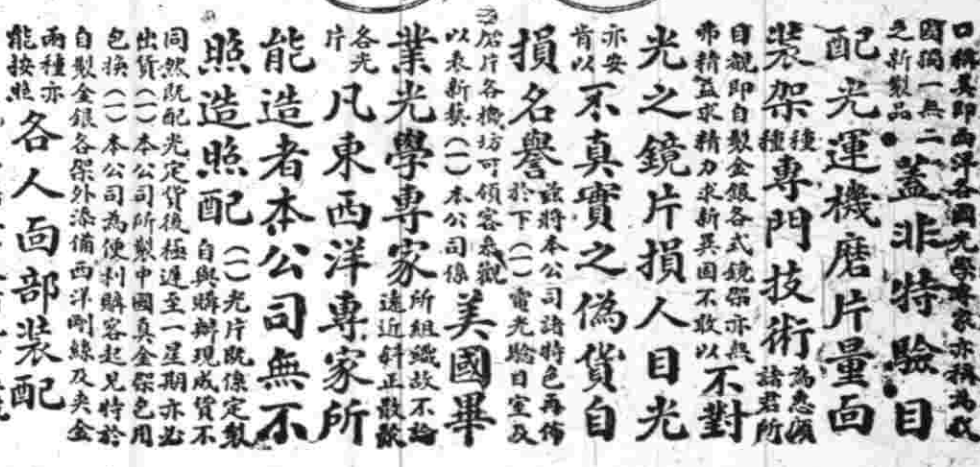 口稱美即西洋各國光學專家亦稱為我
國獨一無二
之新製品
蓋非特驗目
配光運機磨片量面
裝架種種專門技術為悉頒
諸君所
目覩即自製金銀各式鏡架亦無
弗精益求精力求新異固不敢以不對
光之鏡片損人目光
亦安肯以不真實之偽貨自
損名譽茲將本公司諸特色再佈
於下(一)電光驗目室及
磨片各機坊可領客參觀
以表新藝(一)本公司係美國畢
業光學專家所組織故不論
遠近奸正散歇
各光
片凡東西洋專家所
能造者本公司無不
照造照配(一)光片既係定製
自與購辦現成貨不
同然既配光定貨後極遲至一星期亦必
出貨(一)本公司所製中國真金架包用
包換(一)本公司為便利購客起見特於
自製金銀各架外添備西洋剛絲及夾金
兩種亦
能按照各人面部裝配